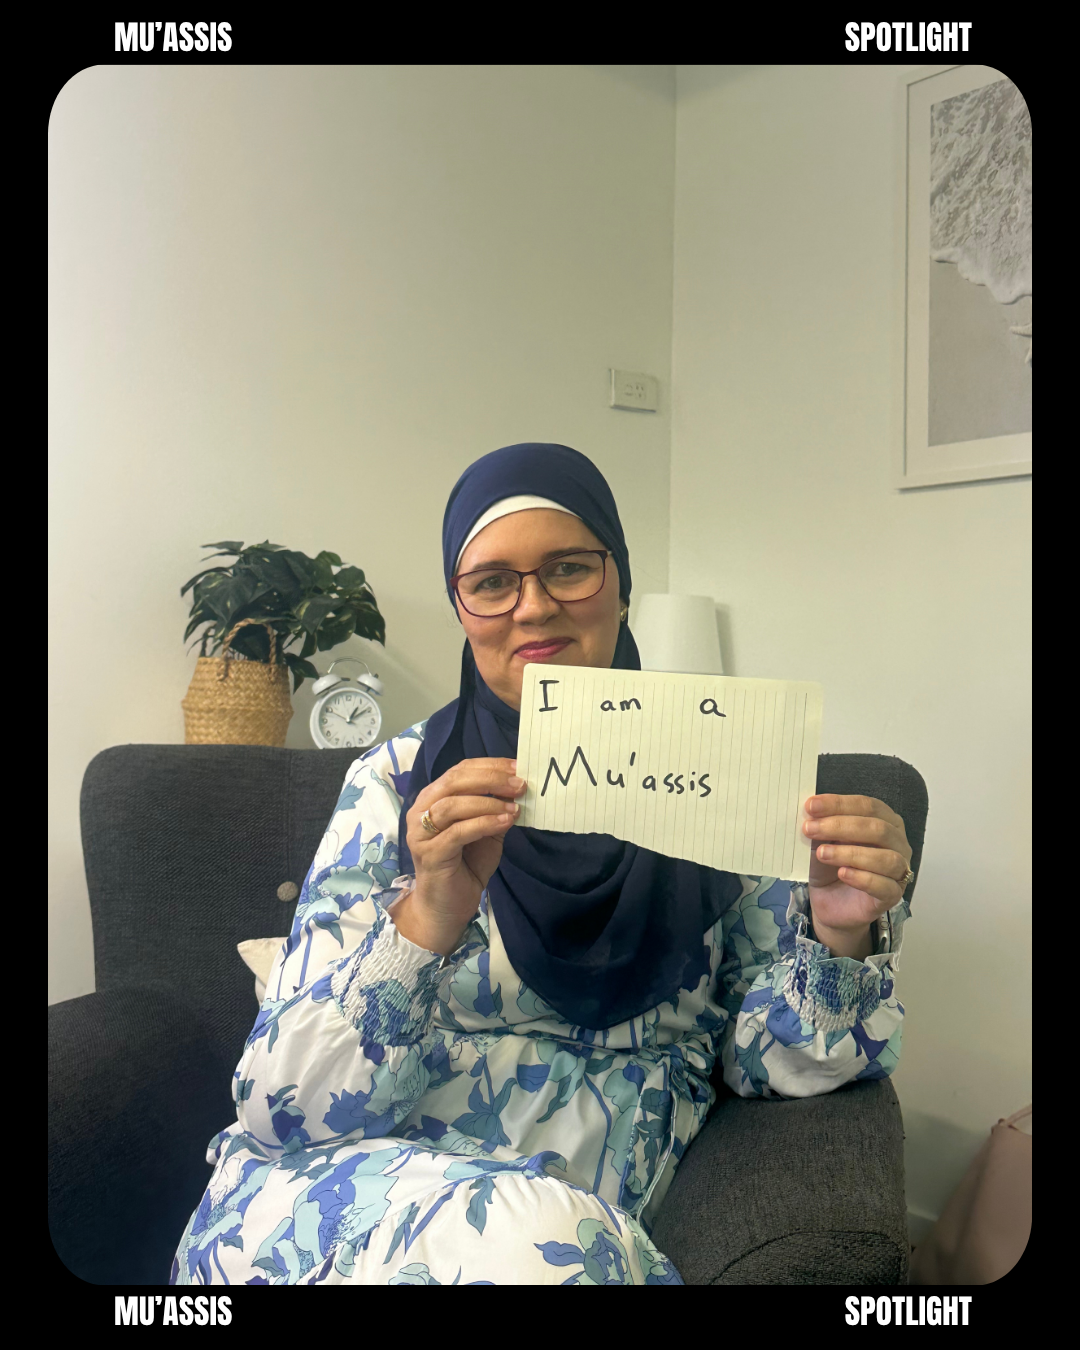 MU’ASSIS SPOTLIGHT
I am a
Mu'assis
MU’ASSIS SPOTLIGHT